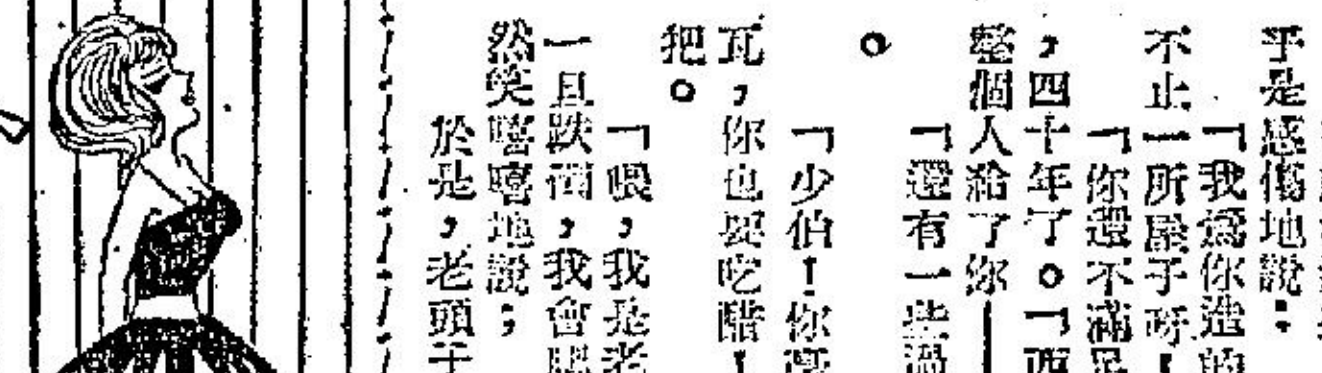 乎是感傷地說：
「我爲你造的
不止一所屋子呀！
「你還不滿足
，四十年了。「西
整個人給了你—
「還有一些過
。
「少伯！你
瓦，你也要吃醋！
把。
「喂，我是老
一旦跌倒，我會
然笑嘻嘻地說；
於是，老頭子